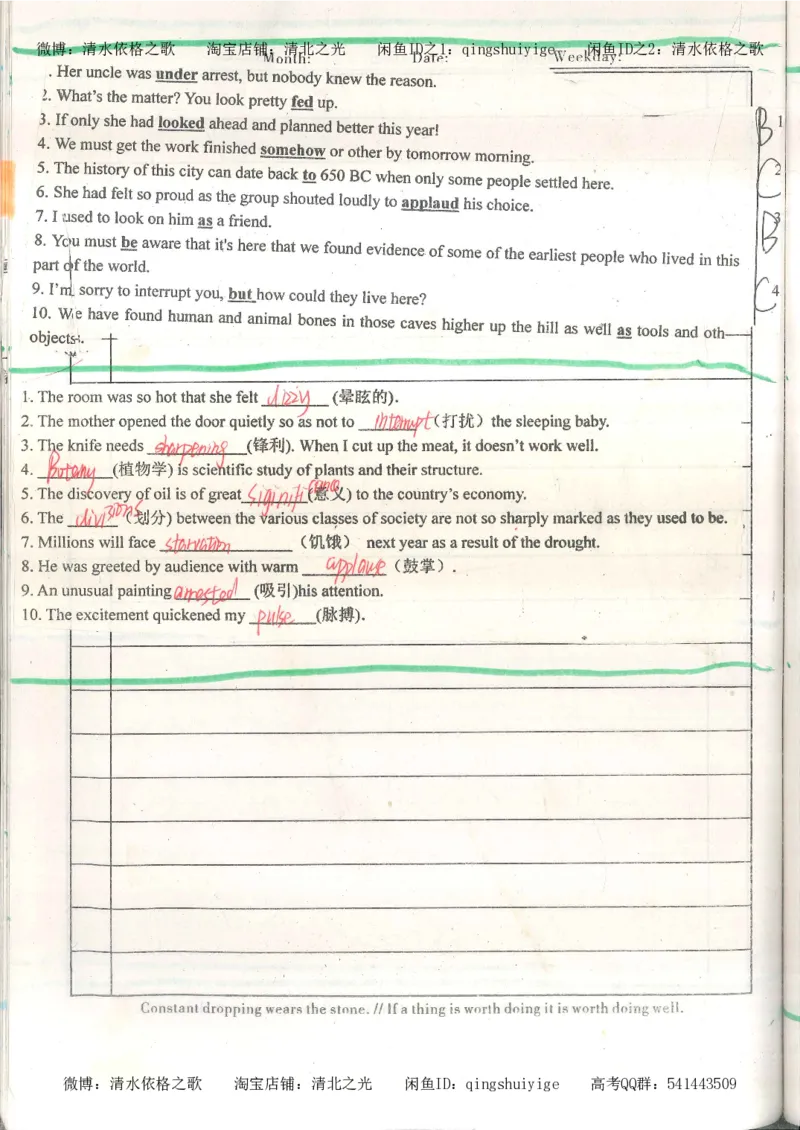 微博：清水依格之歌 淘宝店铺：清北之光 闲鱼ID之1：qingshuiyige 闲鱼ID之2：清水依格之歌
Month: Date: Weekday:
. Her uncle was under arrest, but nobody knew the reason.
2. What's the matter? You look pretty fed up.
3. If only she had looked ahead and planned better this year!
4. We must get the work finished somehow or other by tomorrow morning.
5. The history of this city can date back to 650 BC when only some people settled here.
6. She had felt so proud as the group shouted loudly to applaud his choice.
7. I used to look on him as a friend.
8. You must be aware that it's here that we found evidence of some of the earliest people who lived in this
part of the world.
9. I'm sorry to interrupt you, but how could they live here?
10. We have found human and animal bones in those caves higher up the hill as well as tools and oth
objects.
B 1
C 2
B 3
C 4
1. The room was so hot that she felt dizzy (晕眩的).
2. The mother opened the door quietly so as not to interrupt (打扰) the sleeping baby.
3. The knife needs sharpening (锋利). When I cut up the meat, it doesn't work well.
4. Botany (植物学) is scientific study of plants and their structure.
5. The discovery of oil is of great significance (意义) to the country's economy.
6. The divisions (划分) between the various classes of society are not so sharply marked as they used to be.
7. Millions will face starvation (饥饿) next year as a result of the drought.
8. He was greeted by audience with warm applause (鼓掌).
9. An unusual painting arrested (吸引)his attention.
10. The excitement quickened my pulse (脉搏).
Constant dropping wears the stone. // If a thing is worth doing it is worth doing well.
微博：清水依格之歌 淘宝店铺：清北之光 闲鱼ID：qingshuiyige 高考QQ群：541443509